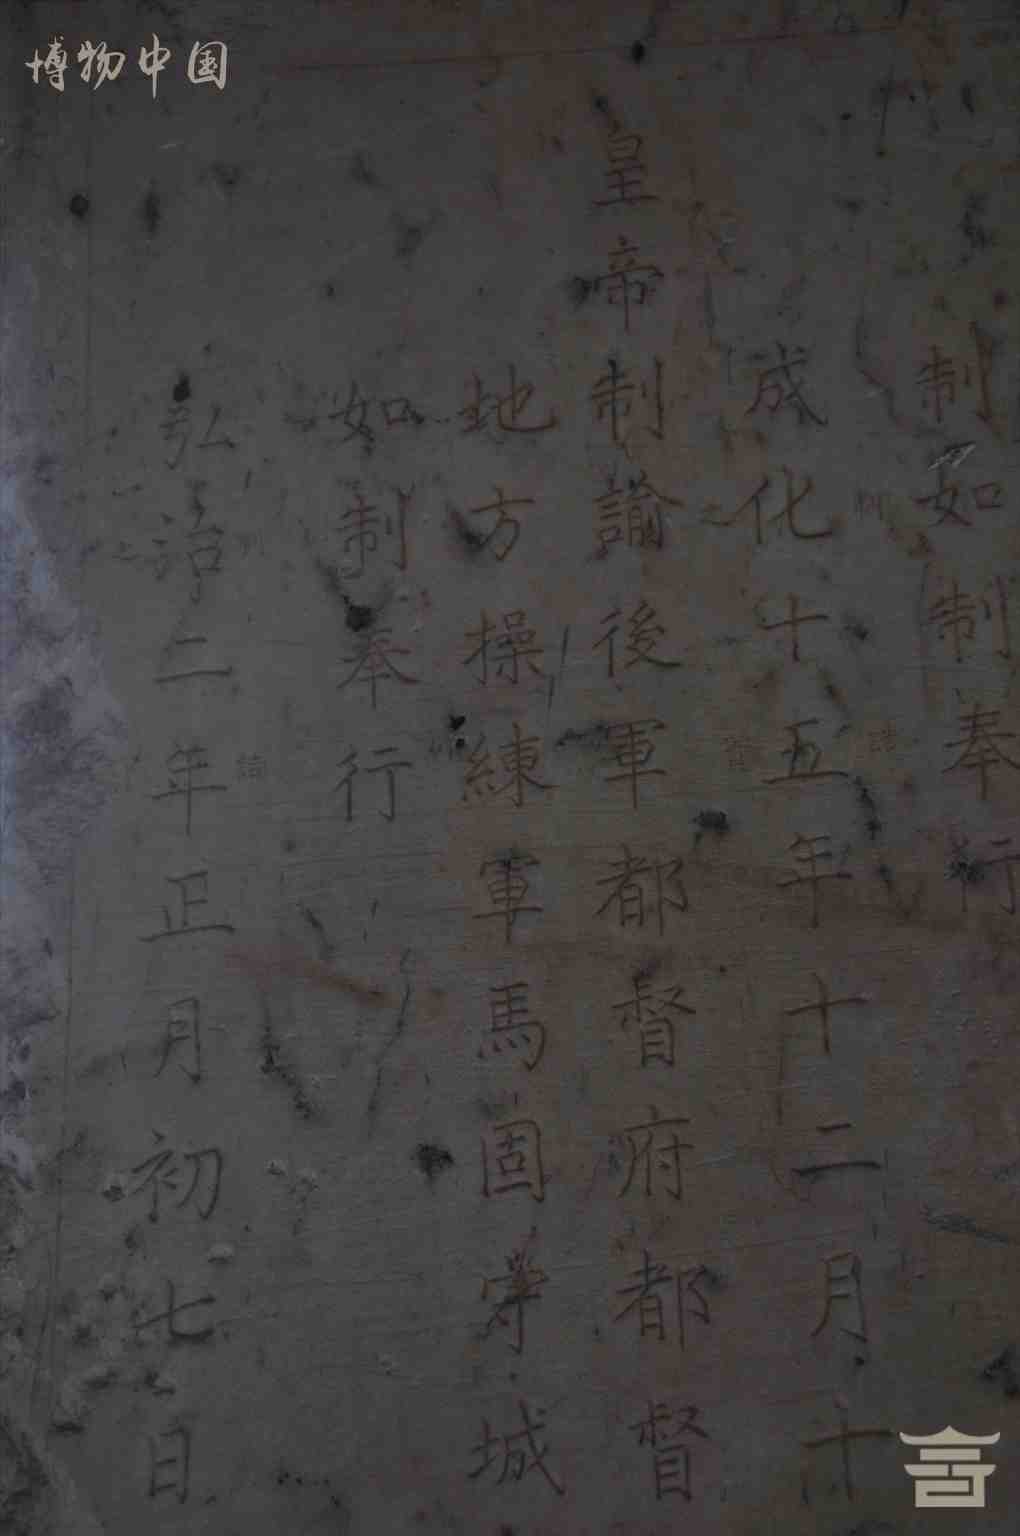 博物中国
制如制奉行
成化十五年十二月十
皇帝制諭後軍都督府都督
地方操練軍馬固守城
如制奉行
弘治二年正月初七日